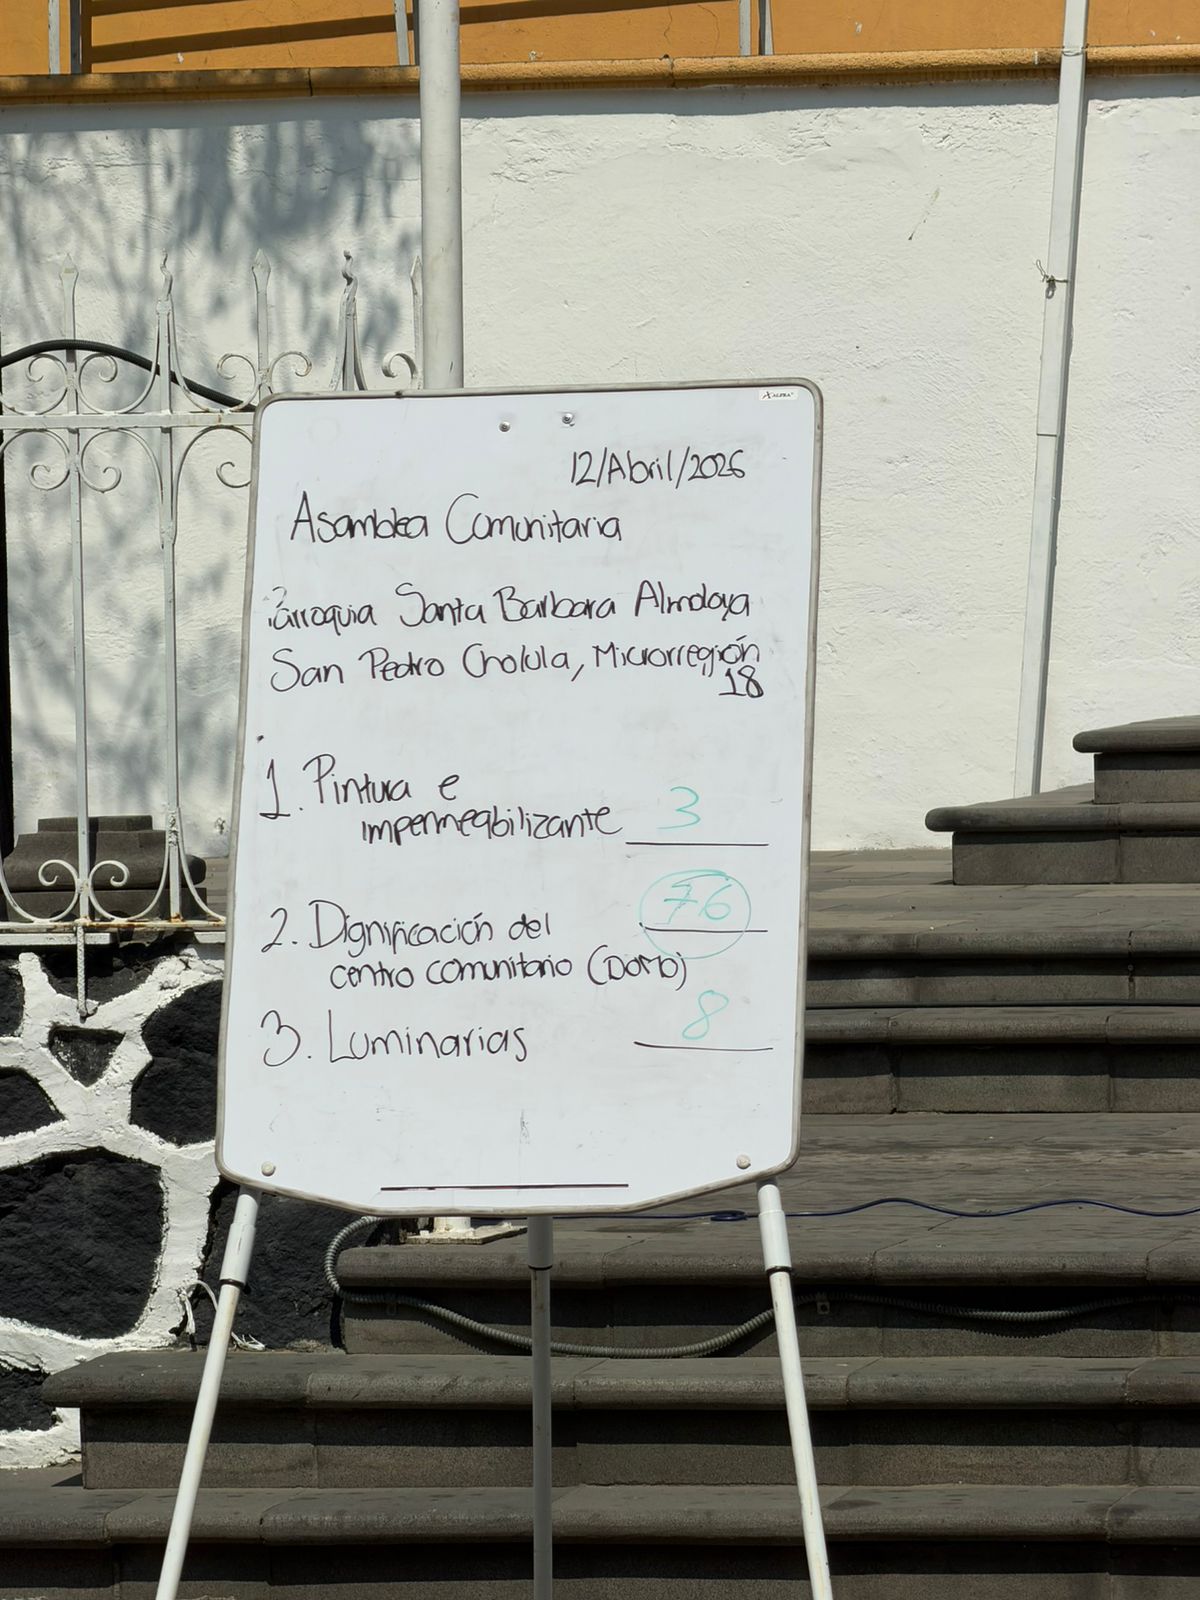 ALFRA
12/Abril/2026
Asamblea Comunitaria
Parroquia Santa Barbara Almoloya
San Pedro Cholula, Microrregión
18
1. Pintura e
impermeabilizante 3
2. Dignificación del 76
centro comunitario (Domo)
3. Luminarias 8